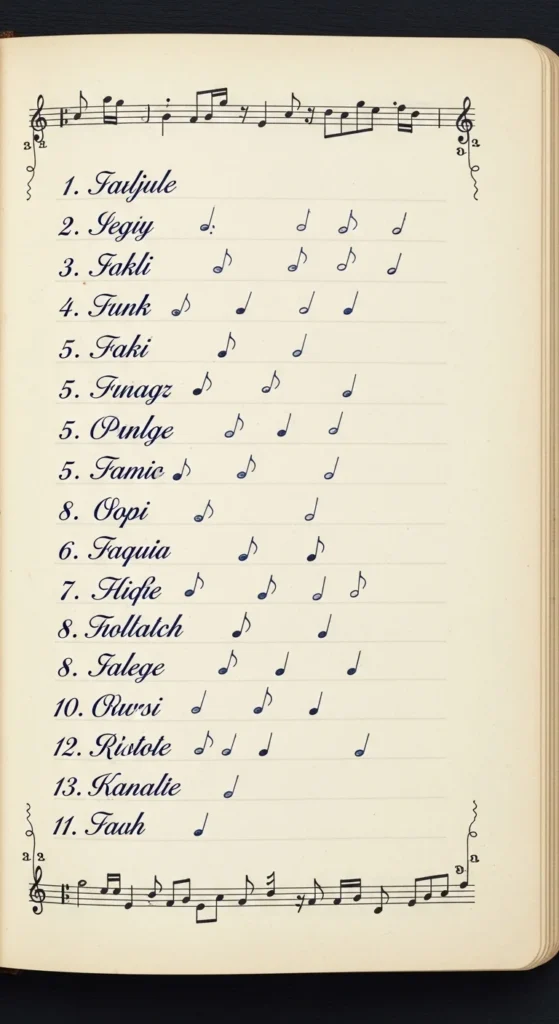 1. Failjule
2. Segiy
3. Fakli
4. Funk
5. Faki
5. Finagz
5. Punlge
5. Famic
8. Oopi
6. Faquia
7. Hiqhe
8. Fiollatch
8. Falege
10. Rursi
12. Ristote
13. Kanalie
11. Fauh